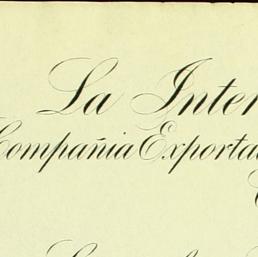 La Inter
Compañia Exporta